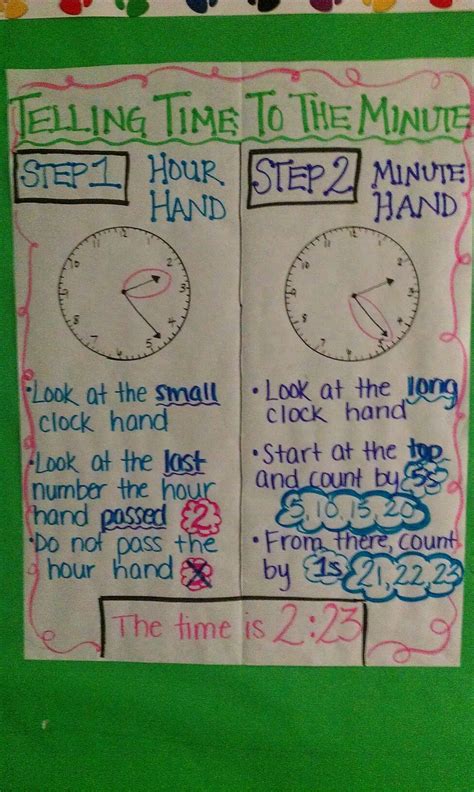 TELLING TIME TO THE MINUTE
STEP 1
HOUR
HAND
12
11
10
2
3
4
5
Look at the small
clock hand
Look at the last
number the hour
hand passed 2
Do not pass the
hour hand 3
STEP 2
MINUTE
HAND
12
11
10
2
3
4
5
• Look at the long
clock hand
• Start at the top
and count by 5s
5, 10, 15, 20
• From there, count
by 1s 21, 22, 23
The time is 2:23